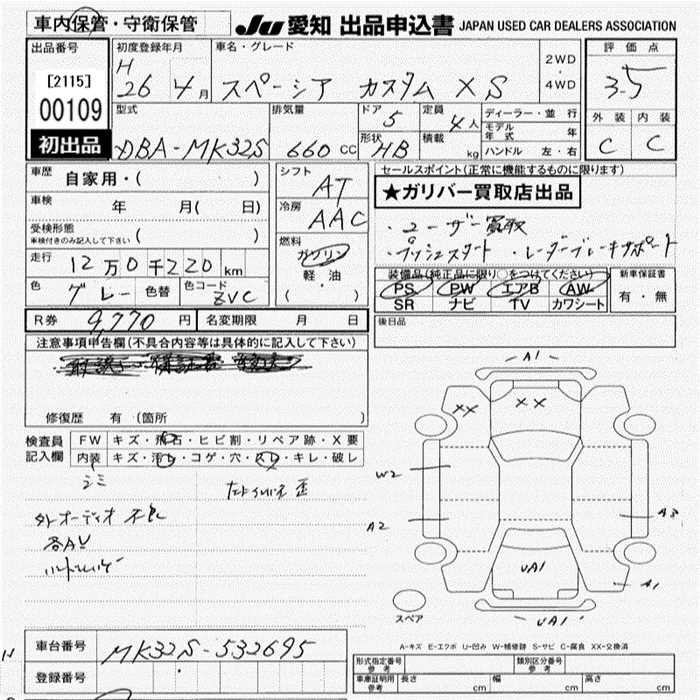 車内保管・守衛保管
JU 愛知 出品申込書 JAPAN USED CAR DEALERS ASSOCIATION
出品番号
[2115]
00109
初出品
初度登録年月
H 26 年 4 月
車名・グレード
スペーシア カスタム XS
2WD
・
4WD
評価点
3.5
外装 内装
C C
型式
DBA-MK32S
排気量
660 CC
ドア 5
形状 HB
定員 4 人
積載 kg
ディーラー・並行
モデル年式 年
ハンドル 左・右
車歴 自家用・( )
車検 年 月( 日)
受検形態
車検付きのみ記入して下さい ( )
走行 12万0千220 km
色 グレー 色替 色コード ZVC
シフト AT
冷房 AAC
燃料 ガソリン
軽・油
( )
セールスポイント(正常に機能するものに限ります)
★ガリバー買取店出品
・ユーザー買取
・プッシュスタート ・レーダーブレーキサポート
装備品(純正品に限り○をつけてください)
PS PW エアB AW
SR ナビ TV カワシート
新車保証書
有・無
後日品
R券 9,770 円 名変期限 月 日
注意事項申告欄(不具合内容等は具体的に記入して下さい)
修復歴 有 (箇所 )
検査員記入欄
FW キズ・飛石・ヒビ割・リペア跡・X要
内装 キズ・汚レ・コゲ・穴・スレ・キレ・破レ
シミ
外オーディオ 不良
各AU
A1
XX XX
W2
A2
A3
UA1
A1
UA1
スペア
A-キズ E-エクボ U-凹み W-補修跡 S-サビ C-腐食 XX-交換済
車台番号 MK32S-532695
登録番号
形式指定番号 参考 類別区分番号 参考
車庫証明用 参考 長さ cm 幅 cm 高さ cm